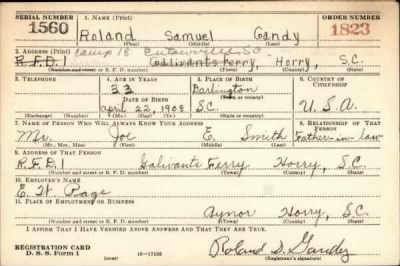 SERIAL NUMBER 1. NAME (Print) ORDER NUMBER
1560 Roland Samuel Gandy 1823
(First) (Middle) (Last)
2. ADDRESS (Print) Camp 18 Eutawville, SC
R.F.D.1 Galivants Ferry, Horry, S.C.
(Number and street or R. F. D. number) (Town) (County) (State)
3. TELEPHONE 4. AGE IN YEARS 5. PLACE OF BIRTH 6. COUNTRY OF CITIZENSHIP
33 Darlington
DATE OF BIRTH (Town or county)
April 22, 1908 S.C. U.S.A.
(Exchange) (Number) (Mo.) (Day) (Yr.) (State or country)
7. NAME OF PERSON WHO WILL ALWAYS KNOW YOUR ADDRESS 8. RELATIONSHIP OF THAT PERSON
Mr. Joe E. Smith Father-in-law
(Mr., Mrs., Miss) (First) (Middle) (Last)
9. ADDRESS OF THAT PERSON
R.F.D.1 Galivants Ferry Horry, S.C.
(Number and street or R. F. D. number) (Town) (County) (State)
10. EMPLOYER'S NAME
E. W. Page
11. PLACE OF EMPLOYMENT OR BUSINESS
Aynor Horry, S.C.
(Number and street or R. F. D. number) (Town) (County) (State)
I AFFIRM THAT I HAVE VERIFIED ABOVE ANSWERS AND THAT THEY ARE TRUE.
REGISTRATION CARD
D. S. S. Form 1 (over) 16-17105 Roland S. Gandy
(Registrant's signature)